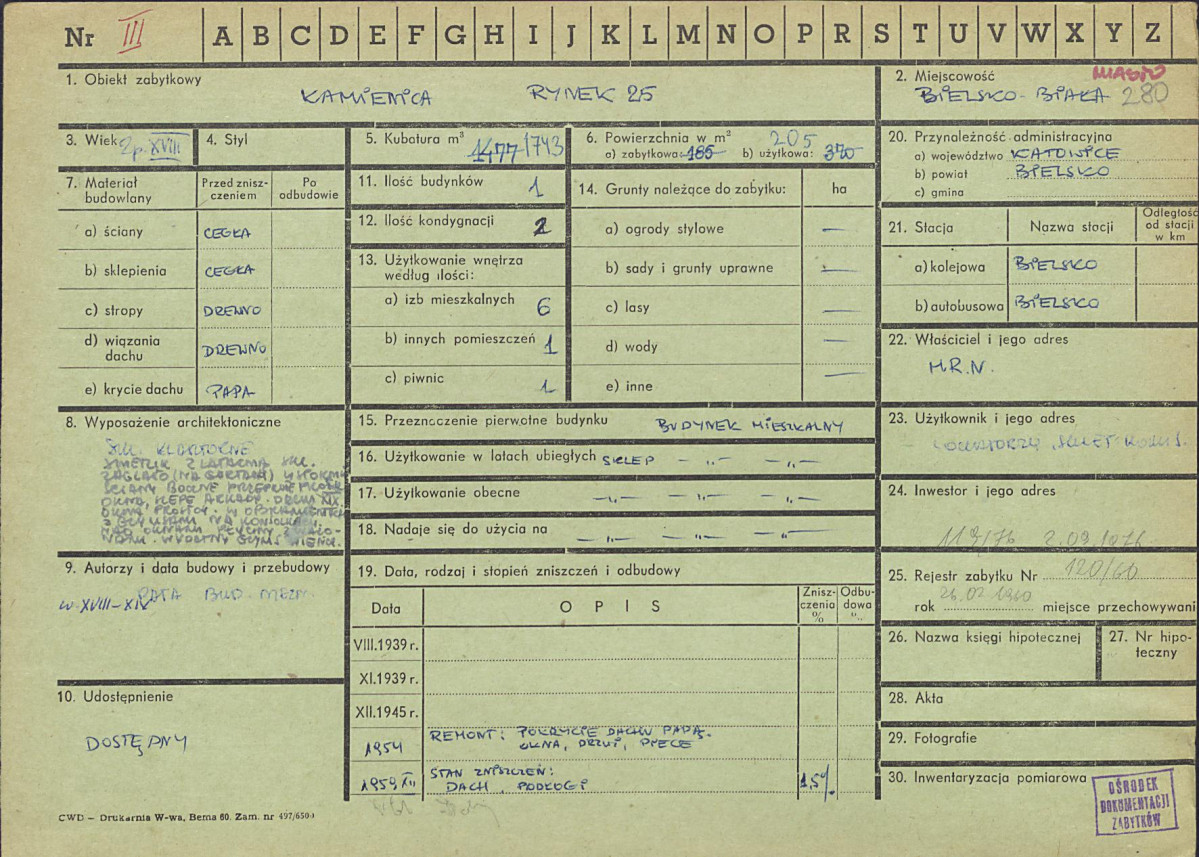 Nr III A B C D E F G H I J K L M N O P R S T U V W X Y Z
1. Obiekt zabytkowy
KAMIENICA RYNEK 25
2. Miejscowość MIASTO
BIELSKO-BIAŁA 280
3. Wiek 2p. XVIII
4. Styl
5. Kubatura m³ 1477 1743
6. Powierzchnia w m² 205
a) zabytkowa: 185 b) użytkowa: 370
20. Przynależność administracyjna
a) województwo KATOWICE
b) powiat BIELSKO
c) gmina
7. Materiał budowlany
Przed zniszczeniem
Po odbudowie
a) ściany CEGŁA
b) sklepienia CEGŁA
c) stropy DREWNO
d) wiązania dachu DREWNO
e) krycie dachu PAPA
11. Ilość budynków 1
12. Ilość kondygnacji 2
13. Użytkowanie wnętrza
według ilości:
a) izb mieszkalnych 6
b) innych pomieszczeń 1
c) piwnic 1
14. Grunty należące do zabytku: ha
a) ogrody stylowe —
b) sady i grunty uprawne —
c) lasy —
d) wody —
e) inne —
21. Stacja
Nazwa stacji
Odległość
od stacji
w km
a) kolejowa BIELSKO
b) autobusowa BIELSKO
22. Właściciel i jego adres
M.R.N.
8. Wyposażenie architektoniczne
SKL.
Z LATARNIĄ SKL.
ŚCIANY BOCZNE
OKNA
9. Autorzy i data budowy i przebudowy
w XVIII-XIX
BUD.
10. Udostępnienie
DOSTĘPNY
15. Przeznaczenie pierwotne budynku BUDYNEK MIESZKALNY
16. Użytkowanie w latach ubiegłych SKLEP — „ — — „ —
17. Użytkowanie obecne — „ — — „ — — „ —
18. Nadaje się do użycia na — „ — — „ — — „ —
19. Data, rodzaj i stopień zniszczeń i odbudowy
Data
OPIS
Zniszczenia
%
Odbudowa
%
VIII.1939 r.
XI.1939 r.
XII.1945 r.
1954 REMONT: POKRYCIE DACHU PAPĄ.
OKNA, DRZWI, PIECE
1959 XII STAN ZNISZCZEŃ:
DACH, PODŁOGI 15%
23. Użytkownik i jego adres
LOKATORZY, SKLEP
24. Inwestor i jego adres
119/76 2.09.1976
25. Rejestr zabytku Nr 120/60
26.02 1960
rok miejsce przechowywani
26. Nazwa księgi hipotecznej
27. Nr hipoteczny
28. Akta
29. Fotografie
30. Inwentaryzacja pomiarowa
OŚRODEK
DOKUMENTACJI
ZABYTKÓW
CWD — Drukarnia W-wa, Bema 60. Zam. nr 497/6504